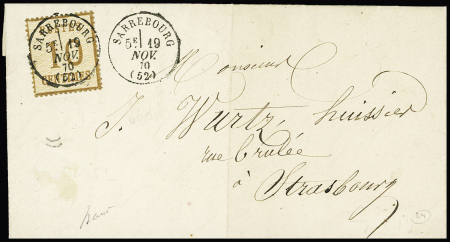 POSTES
10
CENTIMES
SARREBOURG
5E 19
NOV.
70
(52)
SARREBOURG
5E 19
NOV.
70
(52)
Monsieur
J. Wurtz, huissier
rue Brulée
à Strasbourg